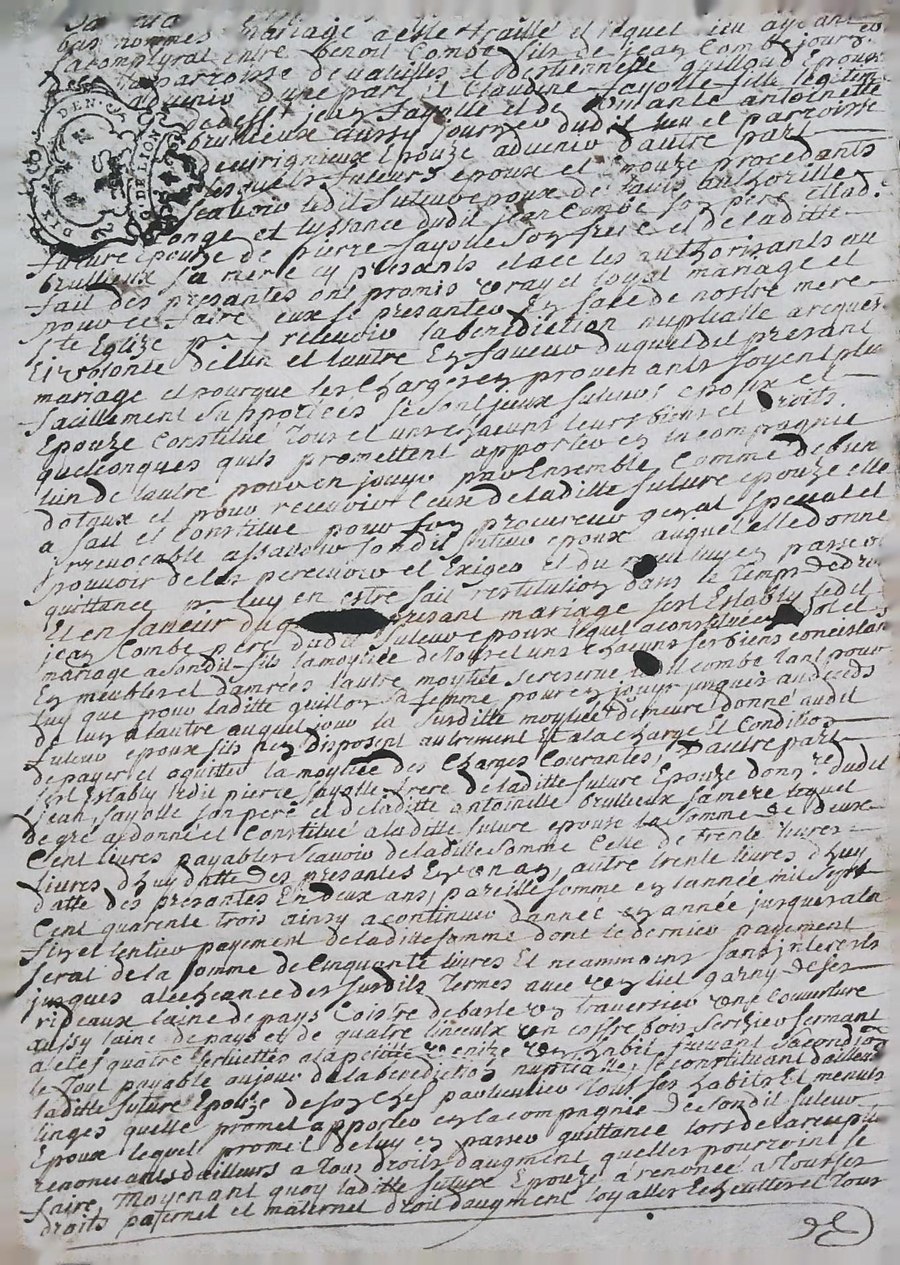 bas nommes mariage a este traitté et lequel dieu aydant
sacomplyrat entre benoit Combe fils de jean Combe jour.er
parroisse de vatilles et d'estiennette guillod Epoux
advenir d'une part et Claudine fayolle fille legitime
de deff. jean fayolle et de romante antoinette
brullieux aussy jour.er dudit lieu et parroisse
eurignieux Epouze advenir d'autre part
lesquels futeurs epoux et Epouze procedants
scavoir ledit futeur epoux de lauthoritte
Conge et lyssance dudit jean Combe son pere et lad.
future Epouze de pierre fayolle son frere et de laditte
brullieux sa mere cy presants et acc les authorisants au
fait des presantes ont promis vray et loyal mariage et
pour ce faire eux se presanter En face de nostre mere
s.te Eglize p.r recevoir la benediction nuptialle arequer
Et volonte de l'un et l'autre En faveur duquel dit presant
mariage et pourque les Charges en provenants soyent plus
facillement Supportées se sont jceux futeurs epoux et
Epouze Constitué Tous et uns chacuns leurs biens et droits
quelconques quils promettent apporter en la compagnie
l'un de l'autre pour en jouyr par Ensemble Comme de bien
dotaux et pour recevoir Ceux de laditte future epouze elle
a fait et Constitué pour son procureur general special et
irrevocable assavoir sondit futeur epoux auquel elle donne
pouvoir de les percevoir et Exiger et du tout luy en passer
quittance p.r luy en estre fait restitution dans le Temps de droit
Et en faveur duq presant mariage sest Estably ledit
jean Combe pere dudit futeur epoux lequel a constitué
mariage a sondit fils la moytiée de tous et uns chacuns ses biens concistants
En meubles et danrées l'autre moytiée se reserve ledit combe tant pour
luy que pour laditte guillod sa femme pour en jouyr jusques au deceds
de luy a lautre auquel jour la susditte moytiée demeure donné audit
futeur epoux sils nen disposent autrement Et a la charge et Condition
de payer et aquitter la moytiée des Charges Courantes, D'autre part
sest Estably ledit pierre fayolle frere de laditte future Epouze don.re dudit
jean fayolle son pere et de laditte antoinette brullieux sa mere lequel
de gré a donné et Constitué a laditte future epouze la somme de deux
Cent livres payables scavoir de laditte somme Celle de trente livres
livres d'huy datte des presantes En un an, autre trente livres d'huy
datte des presantes En deux ans, pareille somme en l'année mil sept
Cent quarente trois ainsy a continuer d'année en année jusques a la
fin et lentier payement de laditte somme dont le dernier payement
serat de la somme de Cinquante livres Et neammoins sans jnterests
jusques a lecheance des susdits Termes avec un liet garny de ses
rideaux laine de pays Coistre de basle un traversier une Couverture
aussy laine de pays et de quatre linceulx un coffre bois Serizier fermant
a clef quatre serviettes a la petitte venize un habit suivant sa condi.on
le Tout payable au jour de la benediction nuptiale, se constituant d'ailleurs
laditte future Epouze de son chef particulier Tous ses habits Et menuts
linges quelle promet apporter en la compagnie de sondit futeur
Epoux lequel promet de luy en passer quittance lors de la reception
renoncants d'ailleurs a Tous droits daugment quelles pourroint se
faire, Moyenant quoy laditte future Epouze a renoncé a Tous ses
droits paternel et maternel droit daugment loyalles Eschuttes et Tour